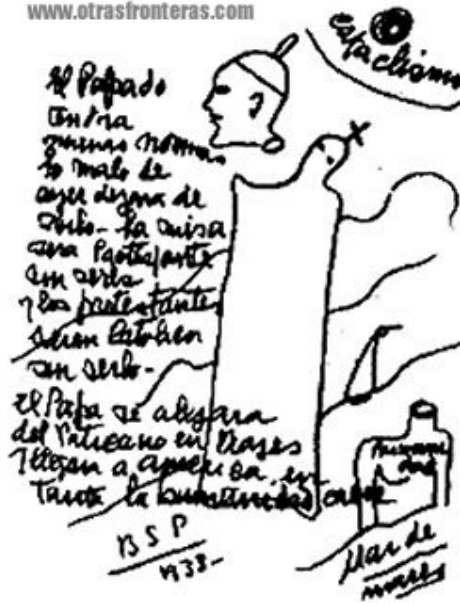 www.otrasfronteras.com
cataclismo
El Papado
tendra
nuevas normas
lo malo de
ayer dejara de
serlo - la misa
sera Protestante
sin serlo
y los protestantes
seran Catolicos
sin serlo -
El Papa se alejara
del Vaticano en Viajes
y llegara a America, en
tanto la humanidad caera
B S P
1938 -
Mar de
mares